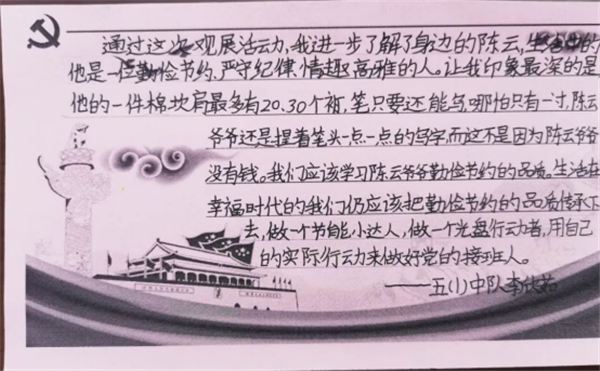 通过这次观展活动,我进一步了解了身边的陈云,生活中的
他是一位勤俭节约、严守纪律、情趣高雅的人。让我印象最深的是
他的一件棉坎肩最多有20.30个补,笔只要还能写,哪怕只有一寸,陈云
爷爷还是捏着笔头一点一点的写字,而这不是因为陈云爷爷
没有钱。我们应该学习陈云爷爷勤俭节约的品质。生活在
幸福时代的我们仍应该把勤俭节约的品质传承下
去,做一个节能小达人,做一个光盘行动者,用自己
的实际行动来做好党的接班人。
——五(1)中队李